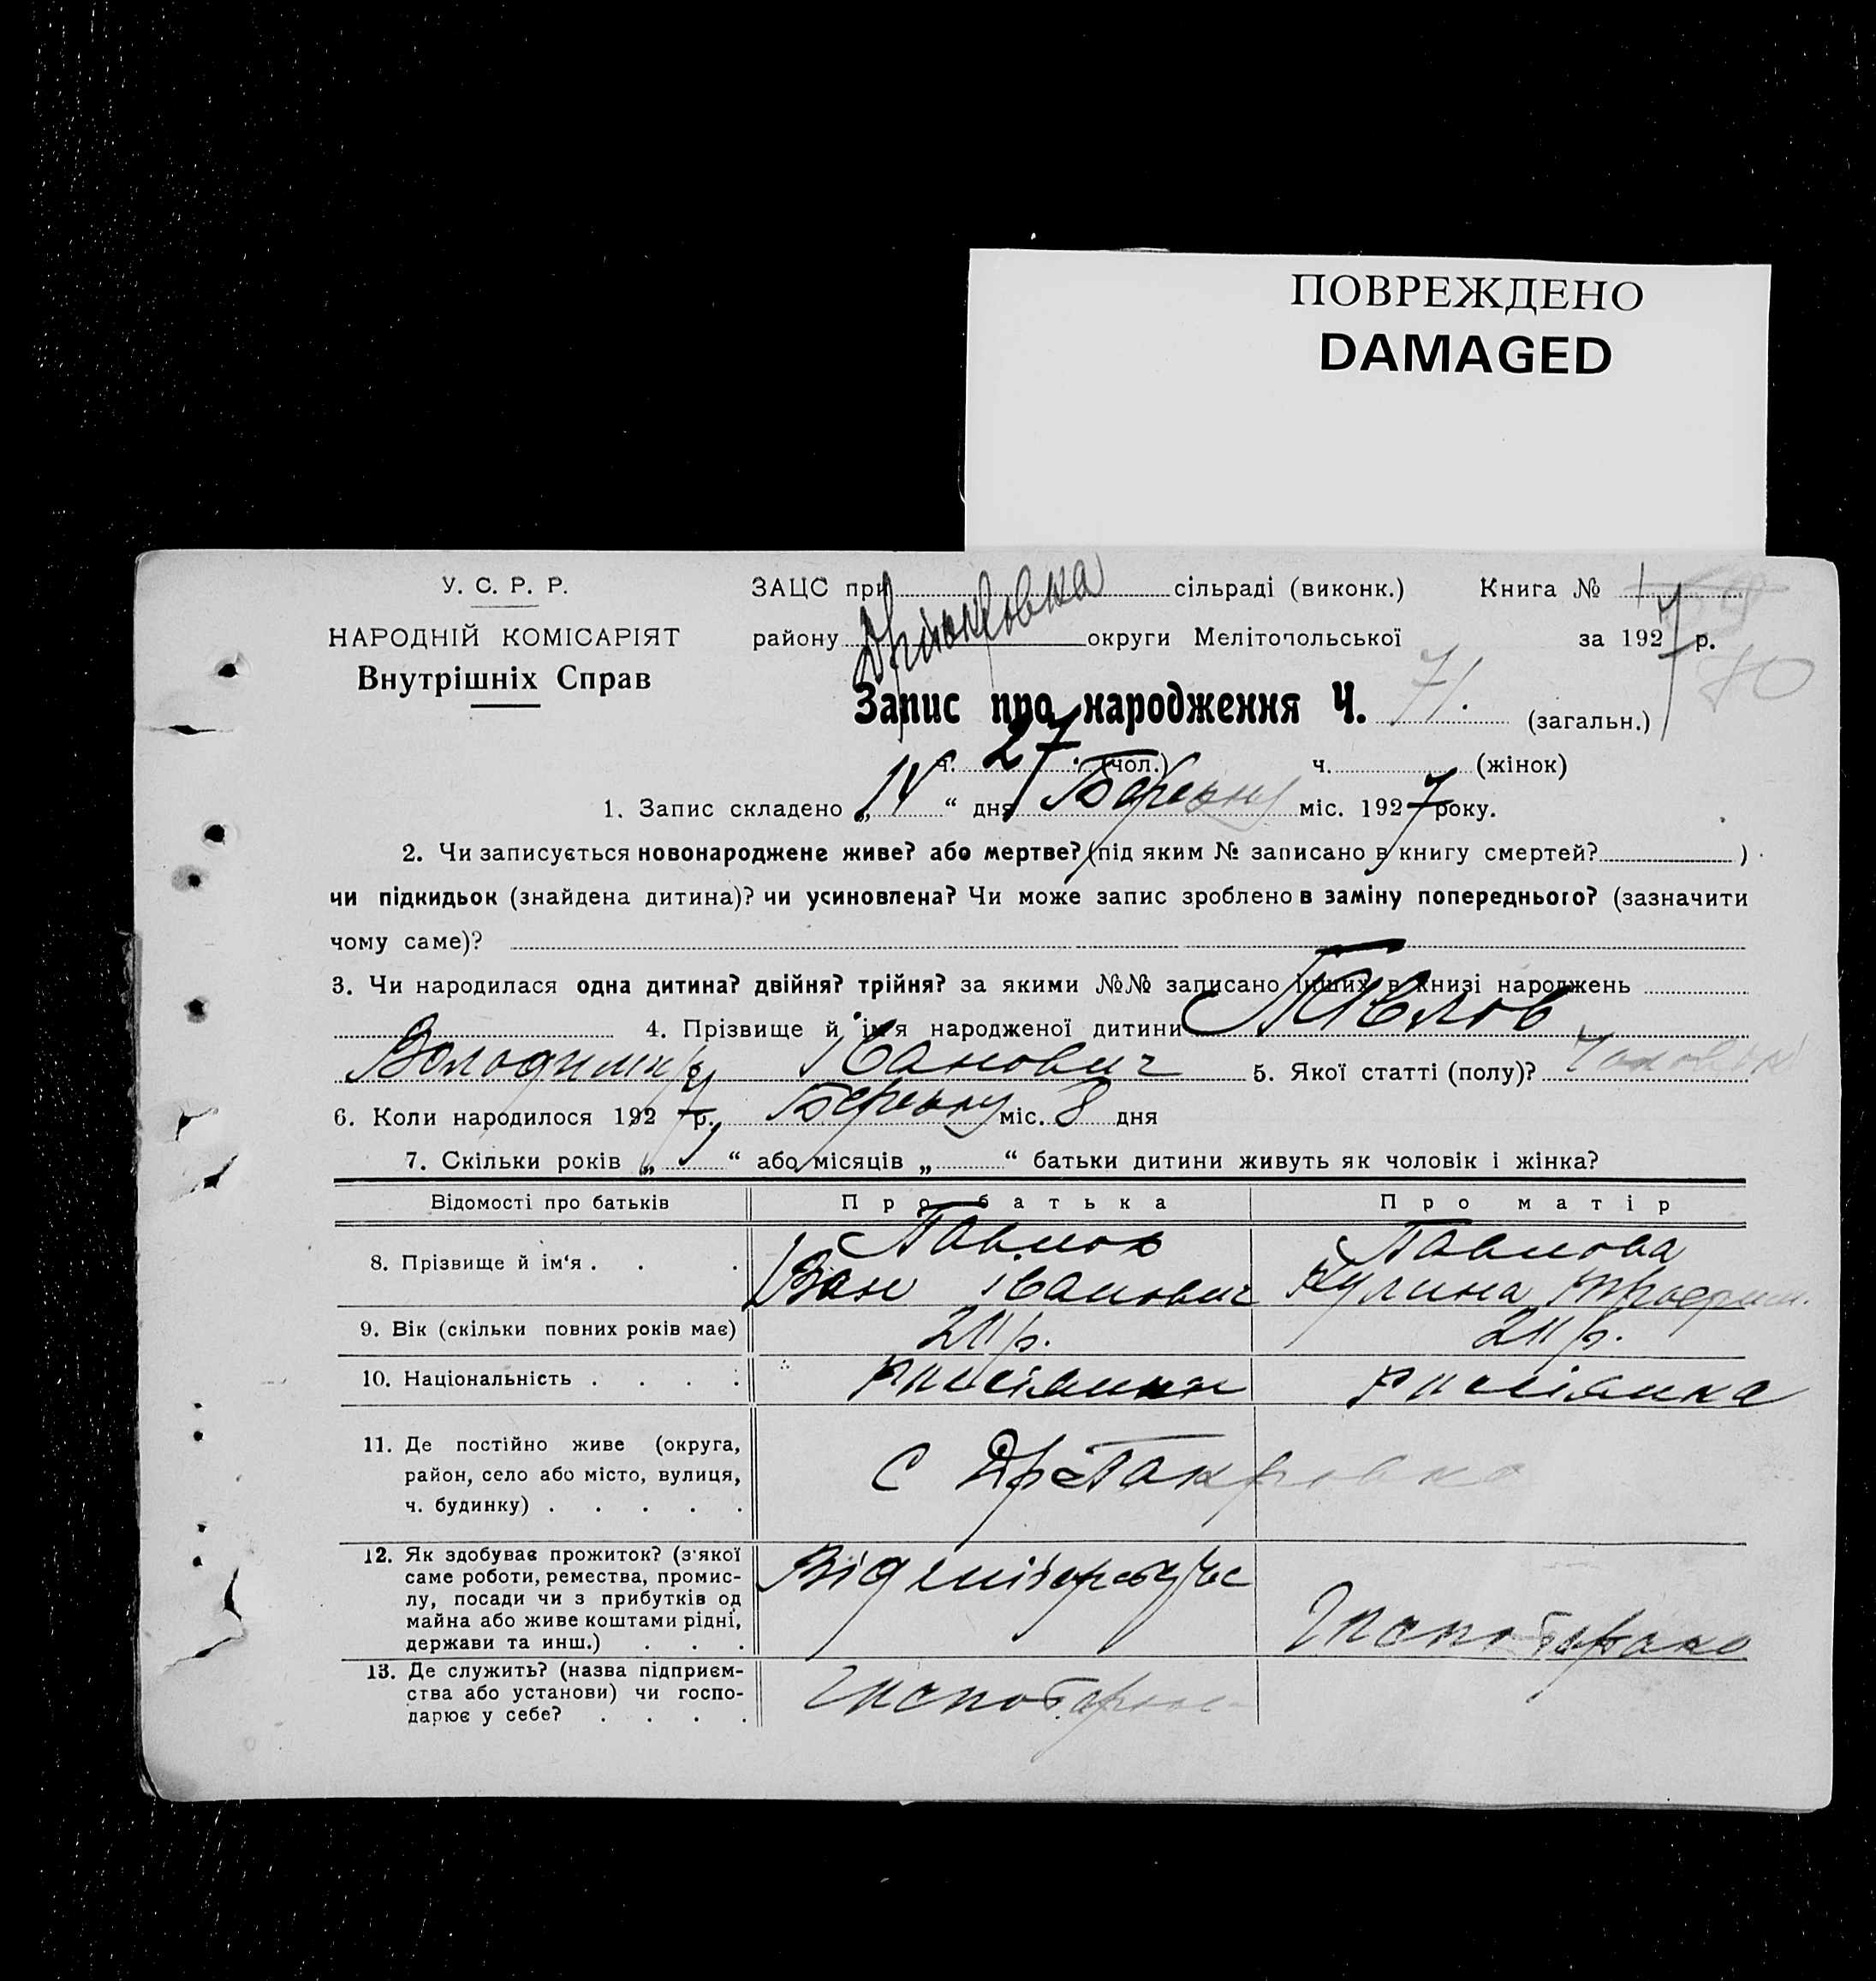 ПОВРЕЖДЕНО
DAMAGED
У. С. Р. Р.
НАРОДНІЙ КОМІСАРІЯТ
Внутрішніх Справ
ЗАЦС при сільраді (виконк.) Книга № 1
району округи Мелітопольської за 1927 р.
80
Запис про народження Ч. 71. (загальн.)
ч. 27. (чол.) ч. (жінок)
1. Запис складено „14“ дня Березня міс. 1927 року.
2. Чи записується новонароджене живе? або мертве? (під яким № записано в книгу смертей? )
чи підкидьок (знайдена дитина)? чи усиновлена? Чи може запис зроблено в заміну попереднього? (зазначити
чому саме)?
3. Чи народилася одна дитина? двійня? трійня? за якими №№ записано інших в книзі народжень
4. Прізвище й ім'я народженої дитини Павлов
Володимир Іванович 5. Якої статті (полу)? Чоловік
6. Коли народилося 1927 р. Березня міс. 8 дня
7. Скільки років „1“ або місяців „ “ батьки дитини живуть як чоловік і жінка?
Відомості про батьків Про батька Про матір
8. Прізвище й ім'я . . . Павлов Павлова
Іван Іванович Кулина
9. Вік (скільки повних років має) 21 р. 21 р.
10. Національність . . . . росіянин росіянка
11. Де постійно живе (округа,
район, село або місто, вулиця, с
ч. будинку) . . . . .
12. Як здобуває прожиток? (з якої
саме роботи, ремества, промис-
лу, посади чи з прибутків од
майна або живе коштами рідні,
держави та инш.) . . .
13. Де служить? (назва підприєм-
ства або установи) чи госпо-
дарює у себе? . . . .